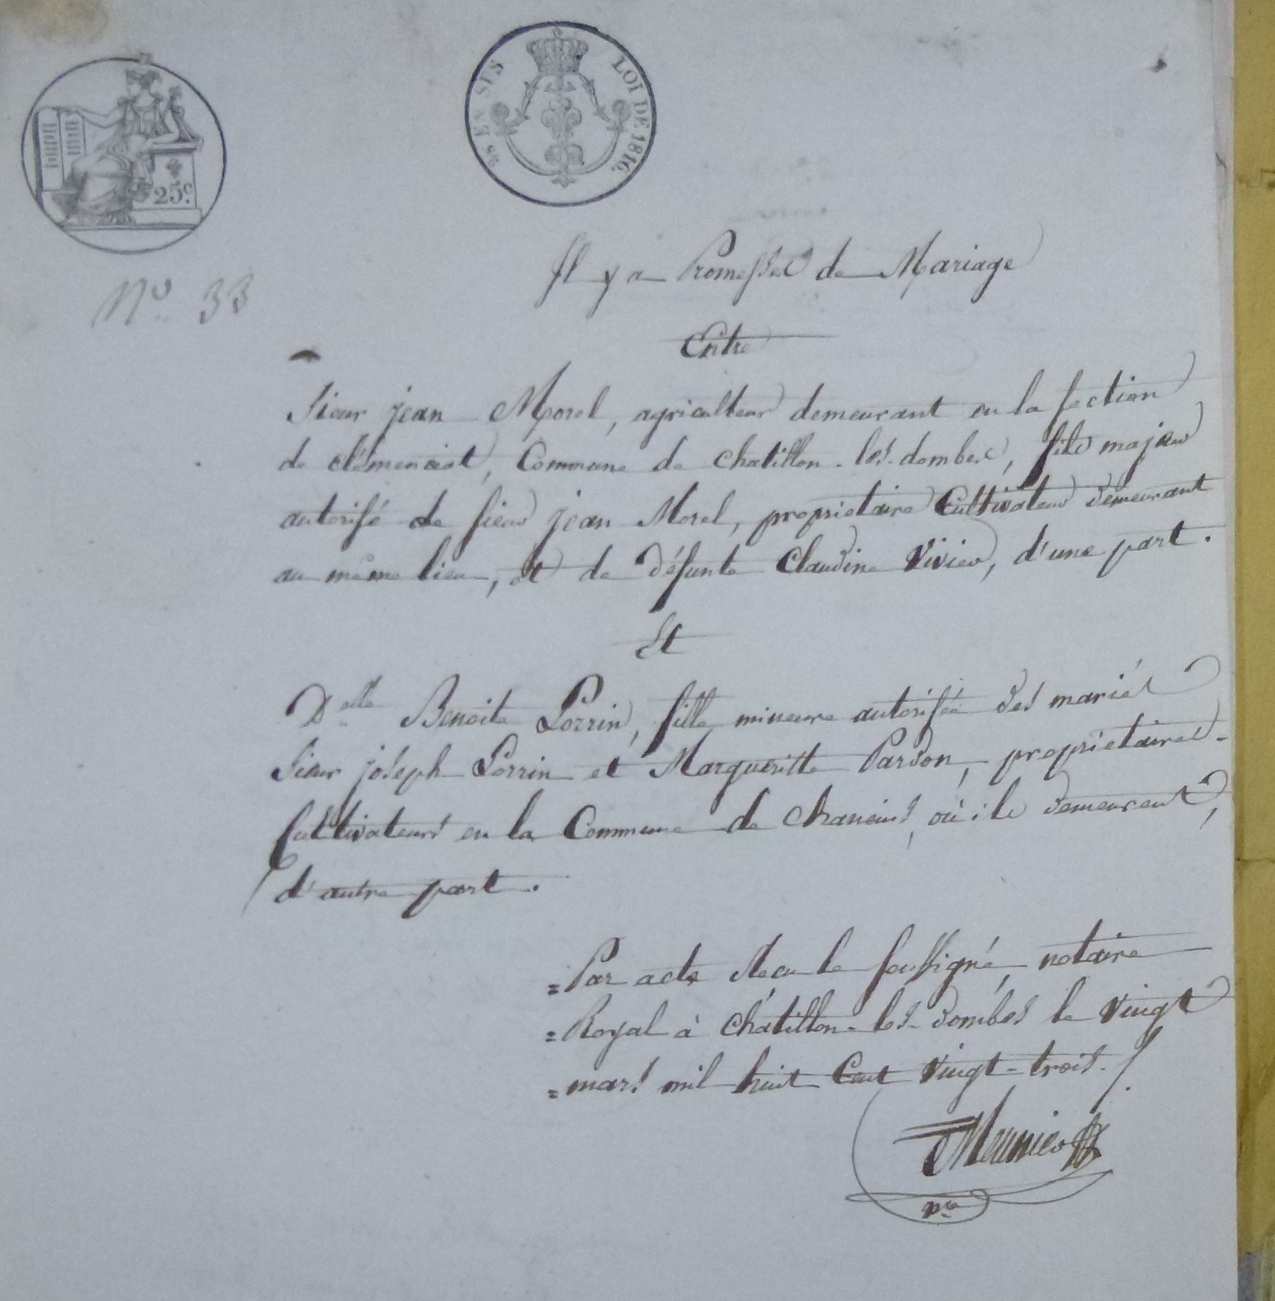 25 EN SUS
LOI DE 1816.
25 c.
N.º 33
Il y a Promesse de Mariage
Entre
Sieur jean Morel, agriculteur demeurant en la section
de clémenciat, Commune de chatillon-les-dombes, fils majeur
autorisé de sieur jean Morel, propriétaire Cultivateur demeurant
au même lieu, et de défunte Claudine Vivier, d'une part.
Et
D.elle Benoite Lorrin, fille mineure autorisée des mariés
Sieur joseph Lorrin et Margueritte Pardon, propriétaires-
Cultivateurs en la Commune de chaneins, où ils demeurent,
d'autre part.
=Par acte Recu le soussigné, notaire
=Royal à châtillon-les-dombes le vingt
=mars mil huit Cent vingt-trois./.
Meunier